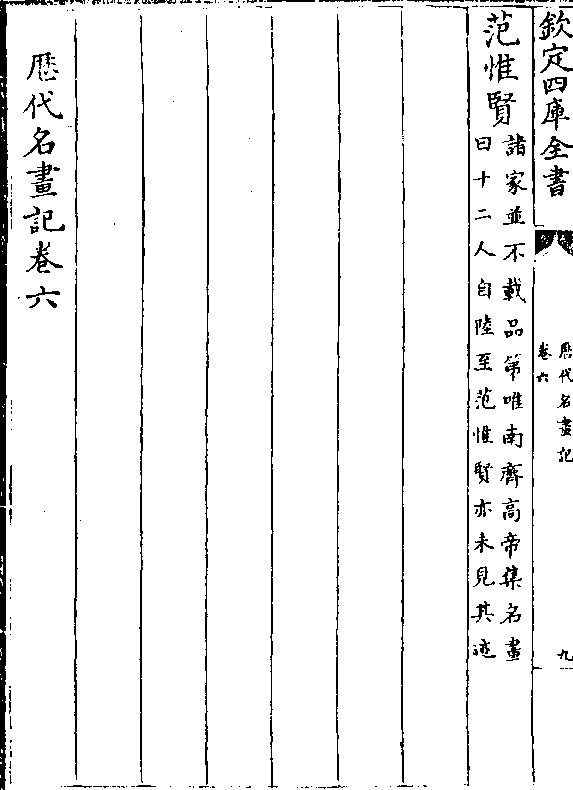 欽定四庫全書
歴代名畫記
卷六
九
范惟賢
諸家並不載品第唯南齊高帝集名畫
曰十二人自陸至范惟賢亦未見其迹
歴代名畫記卷六